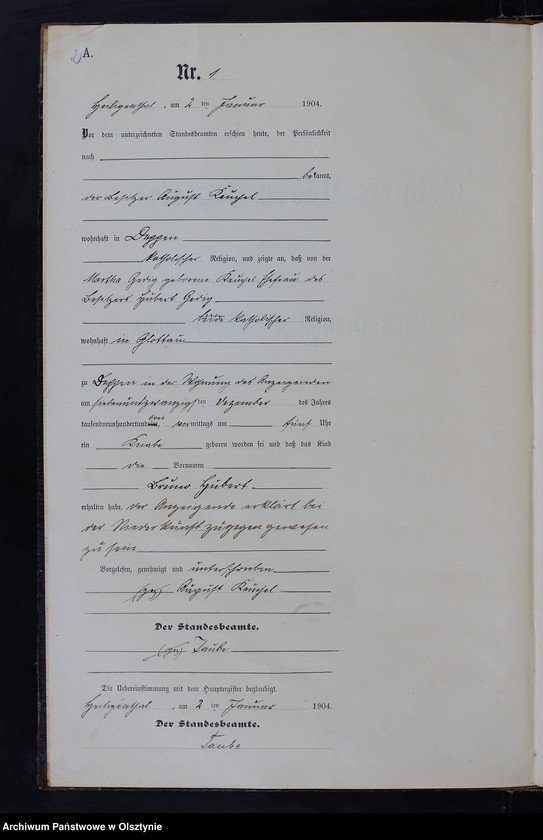 2
A.
Nr. 1
Heiligenthal, am 2 ten Januar 1904.
Vor dem unterzeichneten Standesbeamten erschien heute, der Persönlichkeit
nach
bekannt,
der Besitzer August Keuchel
wohnhaft in Deppen
katholischer Religion, und zeigte an, daß von der
Martha Gerig geborene Keuchel Ehefrau des
Besitzers Hubert Gerig
beide katholischer Religion,
wohnhaft in Glottau
zu Deppen in der Wohnung des Anzeigenden
am siebenundzwanzigsten Dezember des Jahres
tausendneunhundertund drei, vormittags um fünf Uhr
ein Knabe geboren worden sei und daß das Kind
die Vornamen
Bruno Hubert
erhalten habe. Der Anzeigende erklärt bei
der Niederkunft zugegen gewesen
zu sein
Vorgelesen, genehmigt und unterschrieben
(gez) August Keuchel
Der Standesbeamte.
(gez) Taube
Die Uebereinstimmung mit dem Hauptregister beglaubigt.
Heiligenthal, am 2 ten Januar 1904.
Der Standesbeamte.
Taube
Archiwum Państwowe w Olsztynie